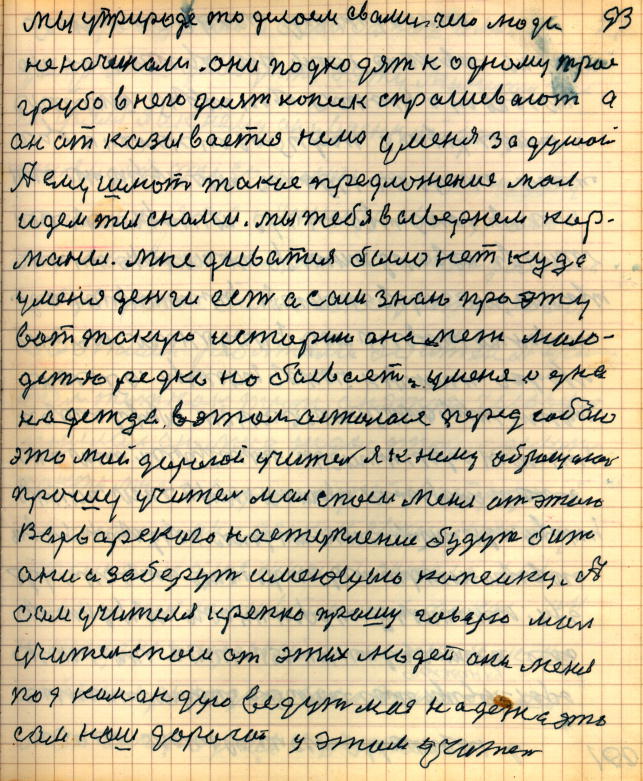 мы у природе то делоем свами чего люди 93
неначинали. они подходят к одному трое
грубо в него десят копеик спрашевают а
он отказывается немо у меня за душой
А ему шлют такие предложение мол
идем ты снами. мы тебя вывернем кар-
маны. мне диватия было нет куда
у меня денги ест а сам знаю про эту
вот такую историю она меж моло-
дежю редко но бывает. у меня одна
надежда, в этом осталося перед собою
это мой дорогой учител я к нему обращаюс
прошу учител мол споси меня от этого
варварского наступление будут бит
они а заберут имеющую копеику. А
сам учителя крепко прошу говорю мол
учител споси от этих людей они меня
под командую ведут моя надежа это
сам наш дорогой у этом учител